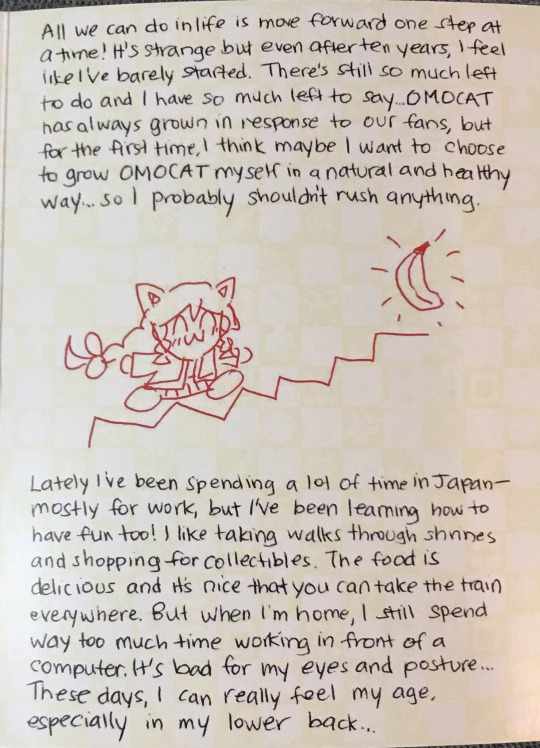 All we can do in life is move forward one step at
a time! It's strange but even after ten years, I feel
like I've barely started. There's still so much left
to do and I have so much left to say...OMOCAT
has always grown in response to our fans, but
for the first time, I think maybe I want to choose
to grow OMOCAT myself in a natural and healthy
way... so I probably shouldn't rush anything.
Lately I've been spending a lot of time in Japan—
mostly for work, but I've been learning how to
have fun too! I like taking walks through shrines
and shopping for collectibles. The food is
delicious and it's nice that you can take the train
everywhere. But when I'm home, I still spend
way too much time working in front of a
computer. It's bad for my eyes and posture...
These days, I can really feel my age,
especially in my lower back...